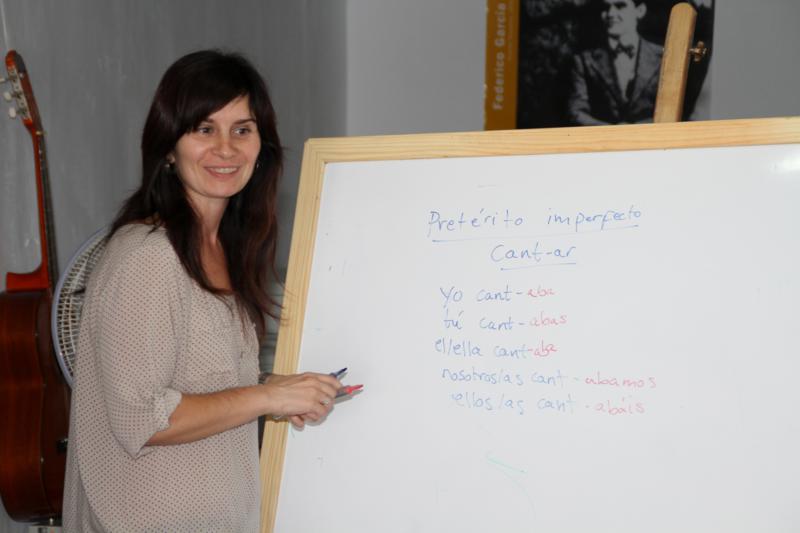 Federico García
Pretérito imperfecto
Cant-ar
yo cant-aba
tú cant-abas
el/ella cant-aba
nosotros/as cant-abamos
ellos/as cant-abáis